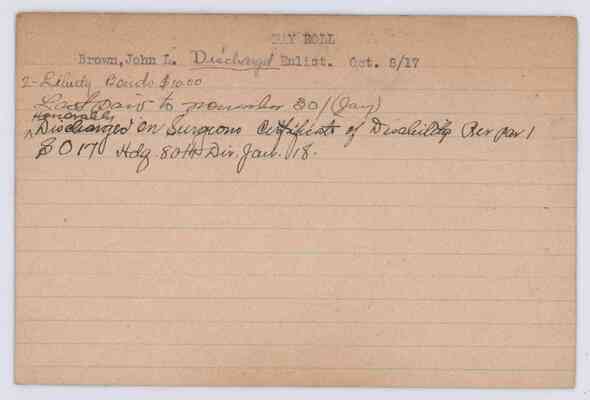 PAY ROLL
Brown, John L. Discharged Enlist. Oct. 8/17
2- Liberty Bonds $10.00
Last paid to November 30/ (Pay)
Honorably
Discharged on Surgeons Certificate of Disability Per par 1
S O 17 Hdq. 80th Div. Jan. 18.